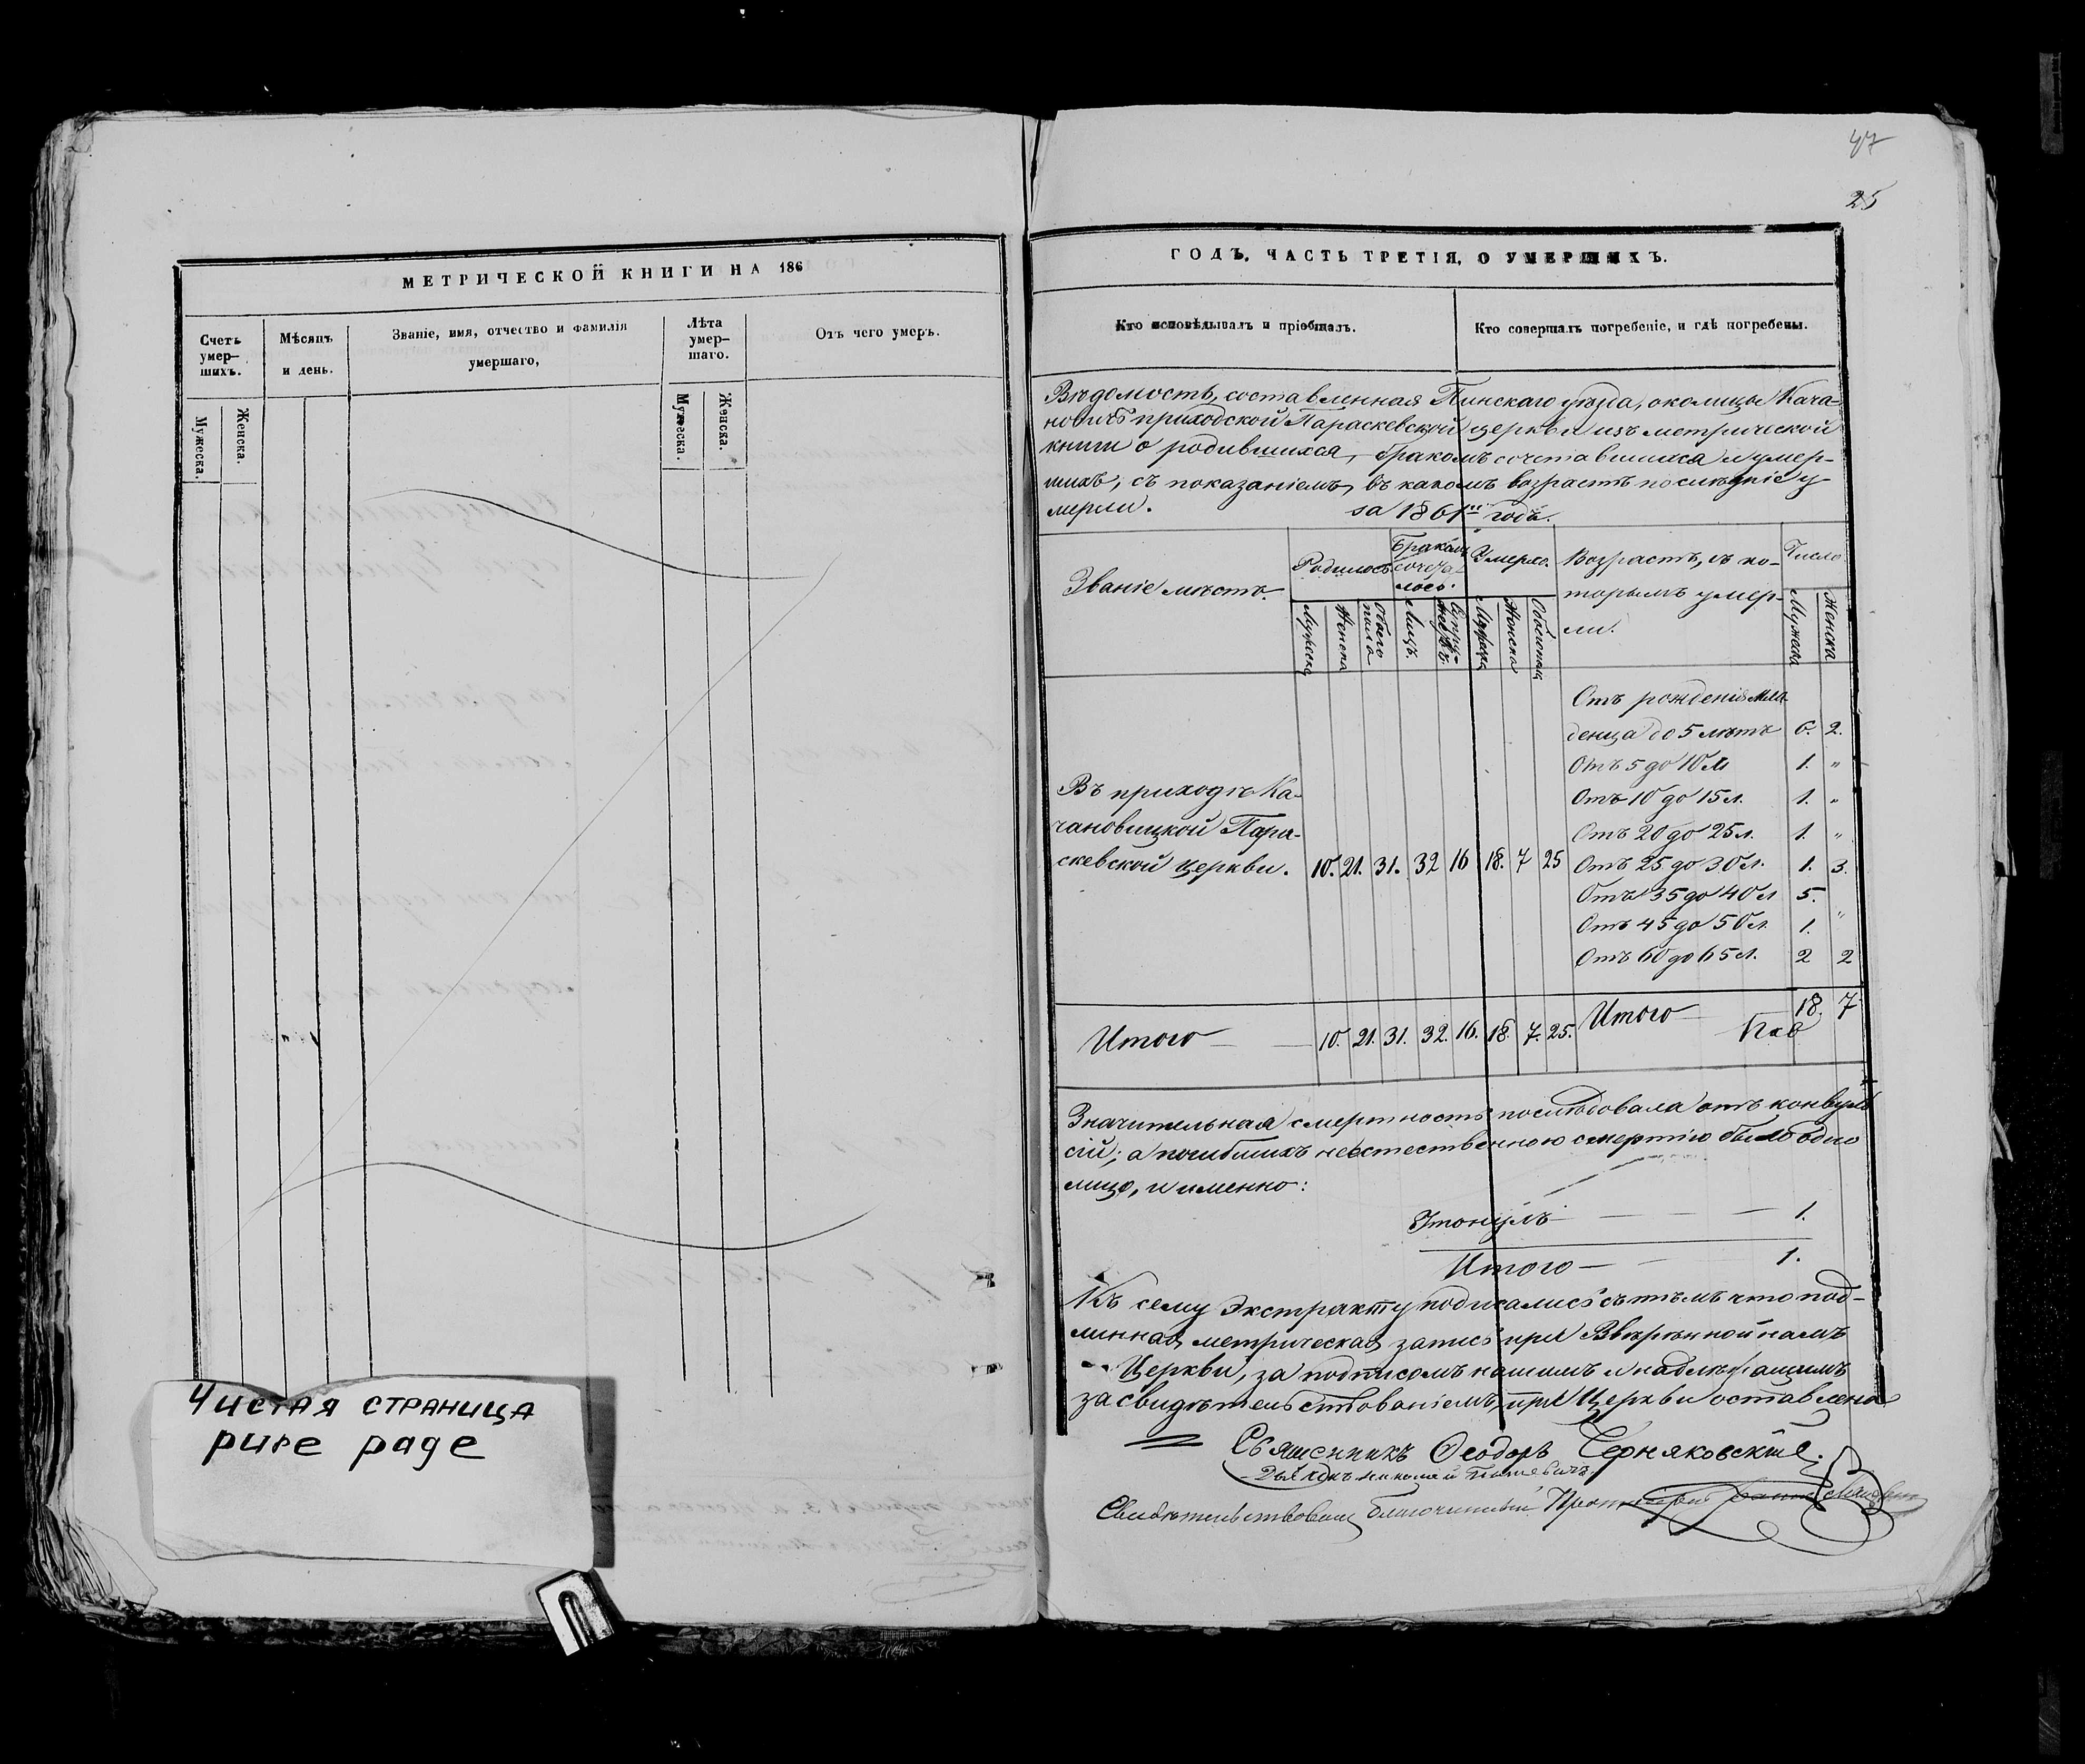 МЕТРИЧЕСКОЙ КНИГИ НА 186
Счетъ умер–шихъ.
Мужеска.
Женска.
Мѣсяцъ и день.
Званіе, имя, отчество и фамилія умершаго,
Лѣта умер–шаго.
Мужеска.
Женска.
Отъ чего умеръ.
Чистая страница
pure page
47
25
ГОДЪ, ЧАСТЬ ТРЕТІЯ, О УМЕРШИХЪ.
Кто исповѣдывалъ и пріобщалъ.
Кто совершалъ погребеніе, и гдѣ погребены.
Вѣдомость, составленная Пинскаго уѣзда, околицы Кача-
новичъ приходской Параскевской церкви изъ метрической
книги о родившихся, бракомъ сочетавшихся и умер-
шихъ, съ показаніемъ, въ какомъ возрастѣ послѣдніе у-
мерли. за 1861й годъ.
Званіе мѣстъ.
Родилось
Бракомъ сочета лось.
Умерло.
Возрастъ, въ ко-
торымъ умер-
ли.
Число
Мужеска
Женска
Обоего пола
Лицъ.
Супру-жествъ.
Мужеска
Женска
Обоего пола
Мужеска
Женска
Отъ рожденія мла-
денца до 5 лѣтъ 6. 2.
Отъ 5 до 10 л. 1. "
Отъ 10 до 15 л. 1. "
Отъ 20 до 25 л. 1. "
Въ приходѣ Ка-
чановицкой Пара-
скевской церкви. 10. 21. 31. 32 16 18. 7 25
Отъ 25 до 30 л. 1. 3.
Отъ 35 до 40 л 5. "
Отъ 45 до 50 л. 1.
Отъ 60 до 65 л. 2 2
Итого 10. 21. 31. 32. 16. 18. 7. 25. Итого 18. 7
Значительная смертность послѣдовала отъ конвуль
сій; а погибшихъ неестественною смертію было одно
лицо, и именно:
Утонулъ — — — — 1.
Итого — — 1.
Къ сему Экстракту подписались съ тѣмъ что под-
линная метрическая запись при Ввѣренной намъ
Церкви, за подписомъ нашимъ и надлежащимъ
засвидѣтельствованіемъ, при Церкви оставлена
Священникъ Ѳеодоръ Черняковскій.
Дьяконъ Николай
Свидѣтельствовалъ благочинный Протоіерей